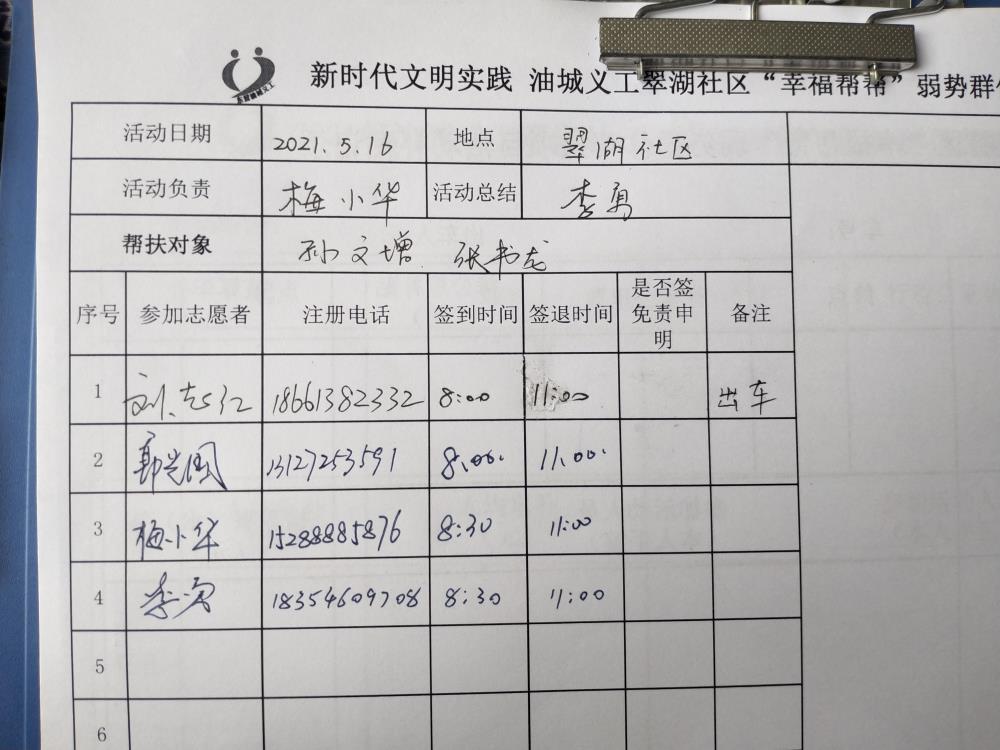 新时代文明实践 油城义工翠湖社区“幸福帮帮”弱势群
活动日期 2021.5.16 地点 翠湖社区
活动负责 梅小华 活动总结 李勇
帮扶对象 孙文增 张书龙
序号 参加志愿者 注册电话 签到时间 签退时间 是否签免责申明 备注
1 刘志江 18661382332 8:00 11:00 出车
2 13127253591 8:00. 11:00.
3 梅小华 15288885876 8:30 11:00
4 李勇 18354609708 8:30 11:00
5
6